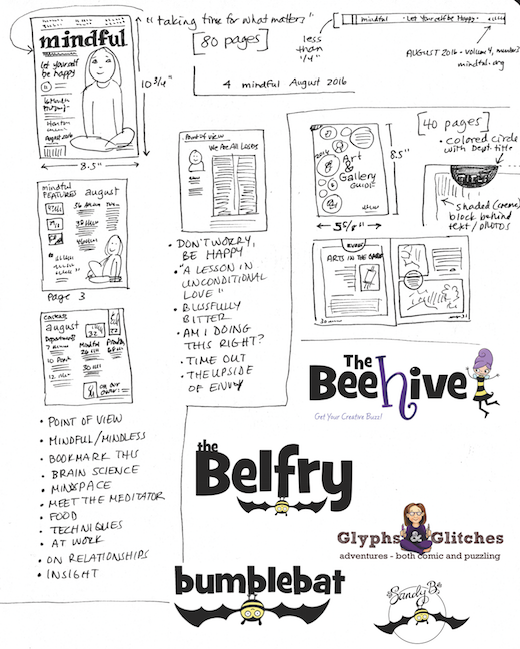 mindful
let yourself
be happy
August 2016
8.5"
10 3/4"
"taking time for what matters"
[80 pages]
less
than
1/4"
mindful · Let Yourself be Happy ·
AUGUST 2016 · volume 4, number
mindful.org
4 mindful August 2016
mindful
FEATURES august
Page 3
august
Departments
Mindful
on our
cover:
· POINT OF VIEW
· MINDFUL/MINDLESS
· BOOKMARK THIS
· BRAIN SCIENCE
· MINDSPACE
· MEET THE MEDITATOR
· FOOD
· TECHNIQUES
· AT WORK
· ON RELATIONSHIPS
· INSIGHT
Point of view
We Are All
· DON'T WORRY,
BE HAPPY
· "A LESSON IN
UNCONDITIONAL
LOVE"
· BLISSFULLY
BITTER
· AM I DOING
THIS RIGHT?
· TIME OUT
· THE UPSIDE
OF ENVY
2016
Art
&
Gallery
GUIDE
8.5"
5 3/8"
[40 pages]
· colored circle
with Dept. title
shaded (creme)
block behind
text/photos
ARTS IN THE
The
Beehive
Get Your Creative Buzz!
the
Belfry
Glyphs & Glitches
adventures - both comic and puzzling
bumblebat
Sandy B.